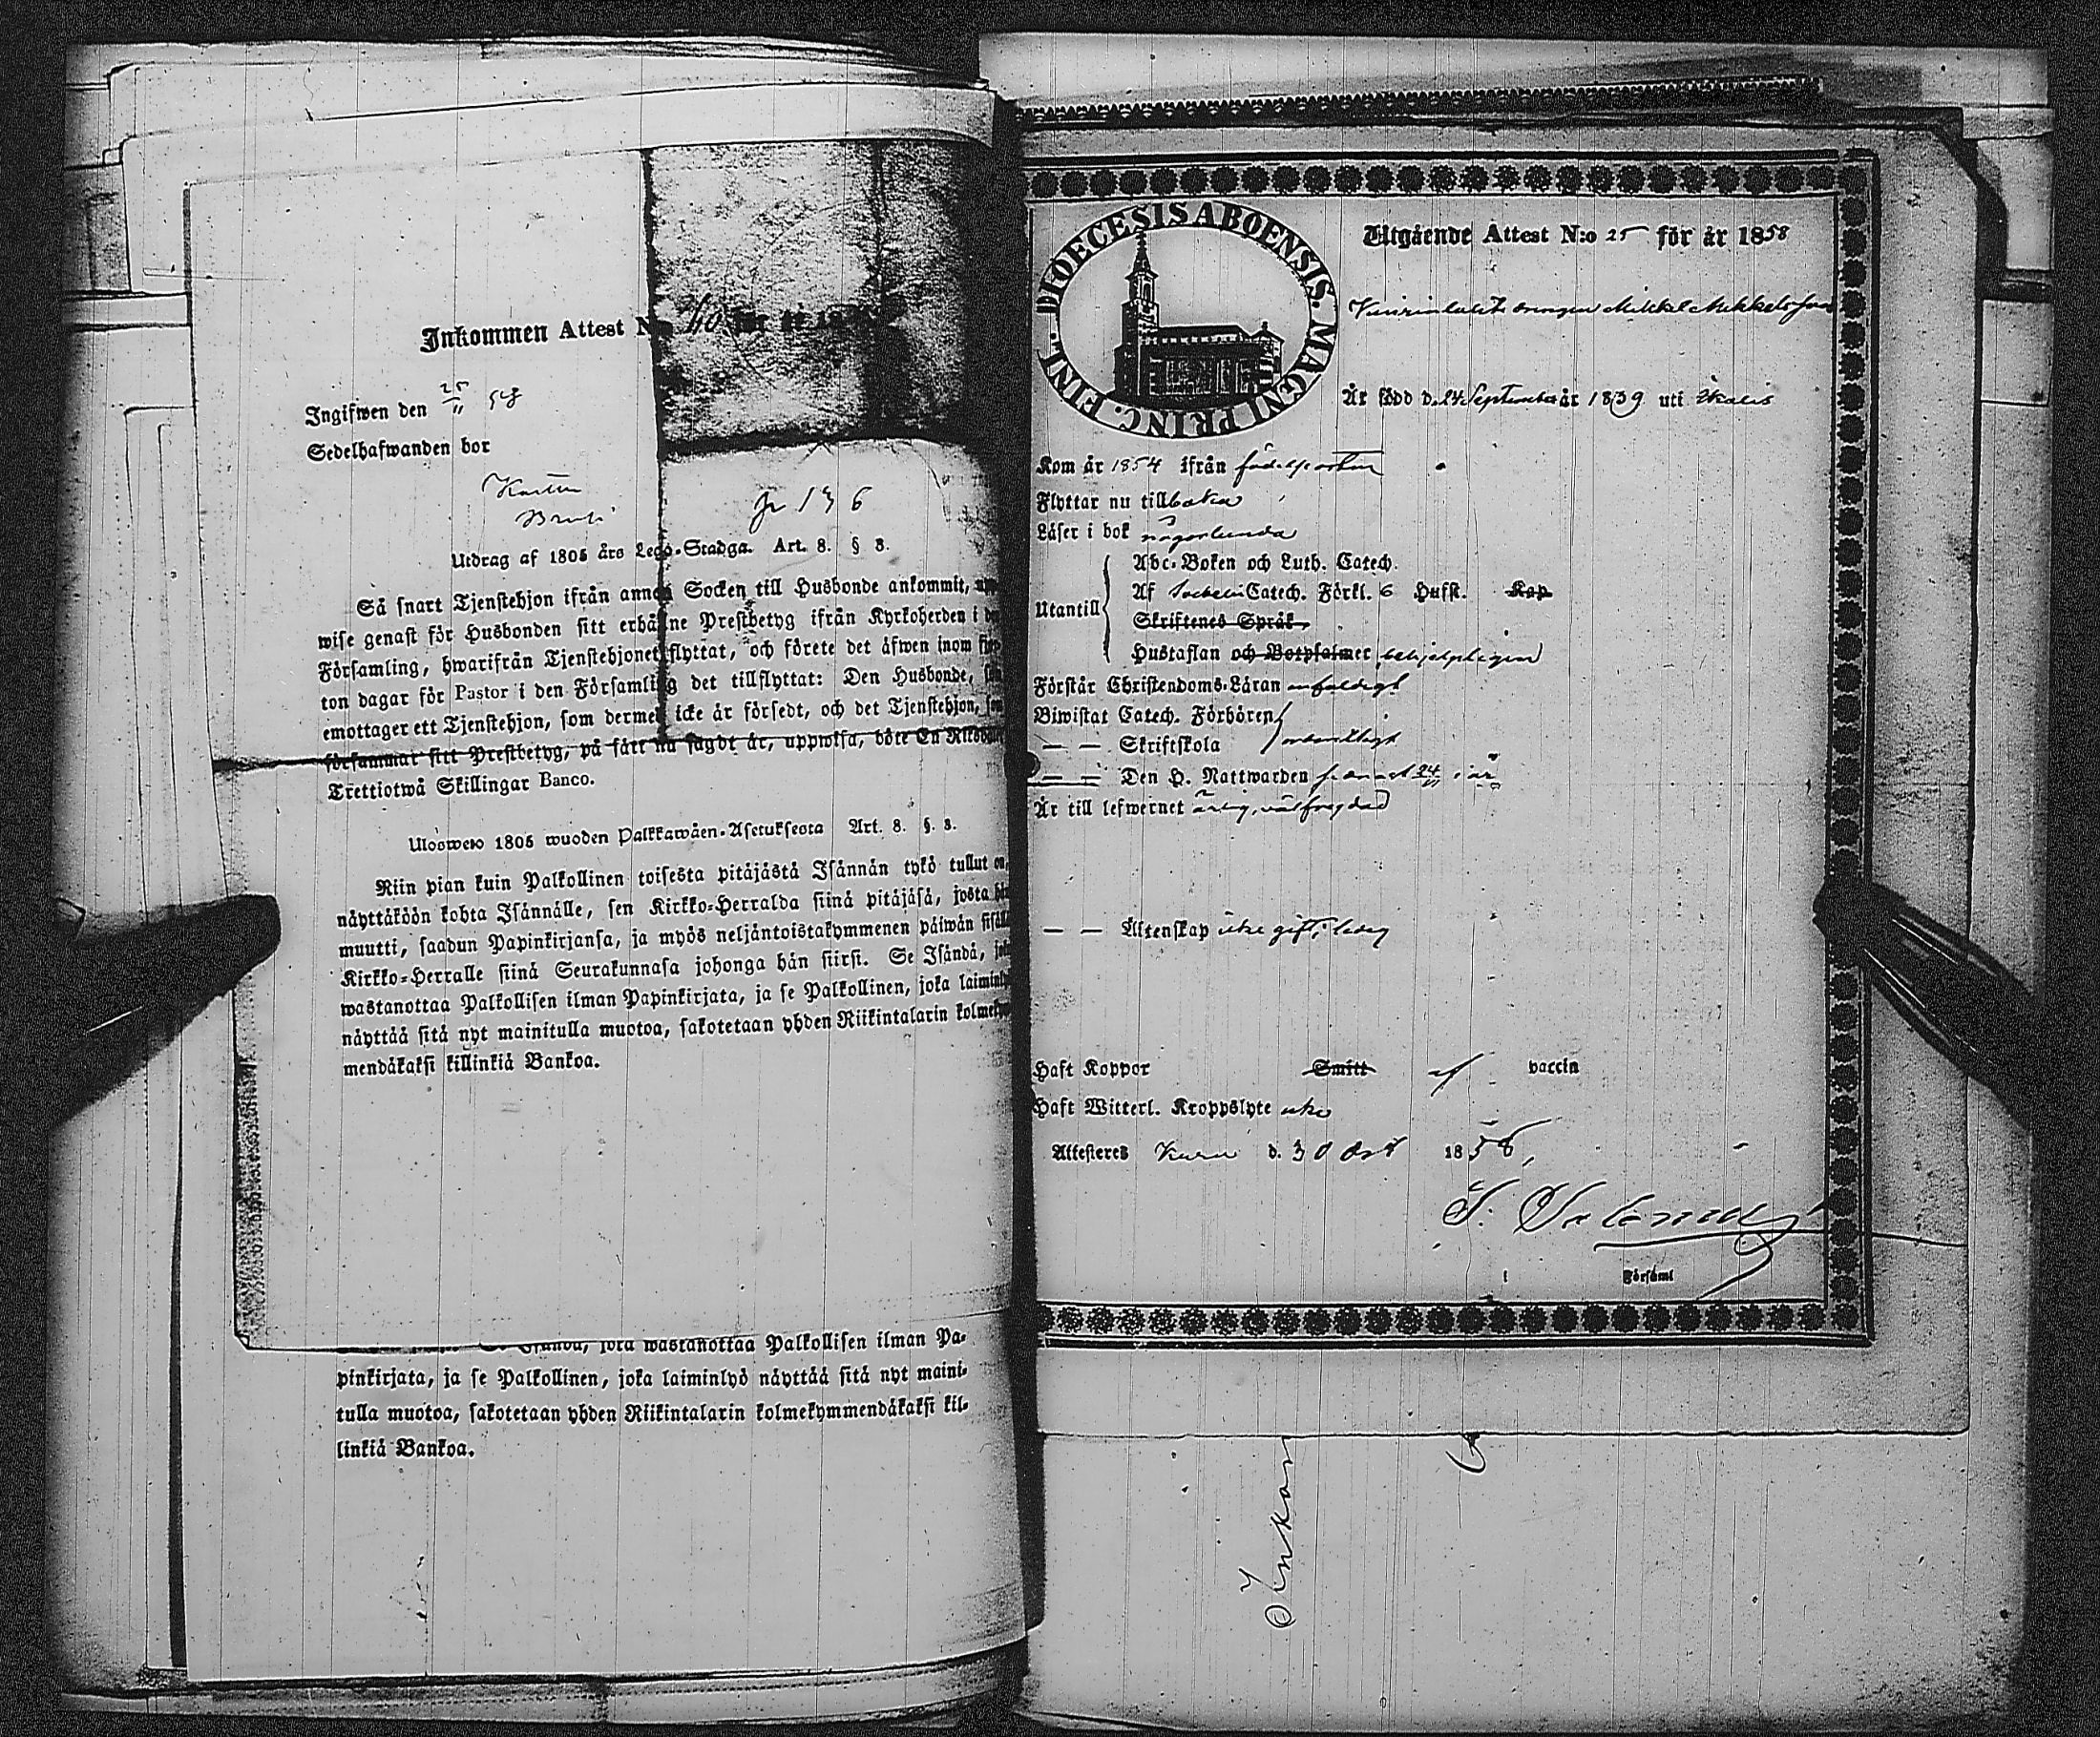 Inkommen Attest N:o 40 för år 18
Ingifwen den 25/11 58
Sedelhafwanden bor
p 136
Utdrag af 1805 års Lego-Stadga. Art. 8. § 8.
Så snart Tjenstehjon ifrån annan Socken till Husbonde ankommit, upp-
wise genast för Husbonden sitt erhållne Prestbetyg ifrån Kyrkoherden i den
Församling, hwarifrån Tjenstehjonet flyttat, och förete det äfwen inom fjor-
ton dagar för Pastor i den Församling det tillflyttat: Den Husbonde, som
emottager ett Tjenstehjon, som dermed icke är försedt, och det Tjenstehjon, som
försummar sitt Prestbetyg, på sätt nu sagdt är, uppwisa, böte En Riksdaler
Trettiotwå Skillingar Banco.
Ulosweto 1805 wuoden Palkkawäen-Asetuksesta Art. 8. §. 8.
Niin pian kuin Palkollinen toisesta pitäjästä Isännän tykö tullut on,
näyttäköön kohta Isännälle, sen Kirkko-Herralda siinä pitäjäsä, josta hän
muutti, saadun Papinkirjansa, ja myös neljäntoistakymmenen päiwän sisällä
Kirkko-Herralle siinä Seurakunnasa johonga hän siirsi. Se Isändä, joka
wastanottaa Palkollisen ilman Papinkirjata, ja se Palkollinen, joka laiminlyö
näyttää sitä nyt mainitulla muotoa, sakotetaan yhden Riikintalarin kolmekym-
mendäkaksi killinkiä Bankoa.
joka wastanottaa Palkollisen ilman Pa-
pinkirjata, ja se Palkollinen, joka laiminlyö näyttää sitä nyt maini-
tulla muotoa, sakotetaan yhden Riikintalarin kolmekymmendäkaksi kil-
linkiä Bankoa.
DIOECESIS ABOENSIS. MAGNI PRINC. FINL.
Utgående Attest N:o 25 för år 1858
drengen Mikkel Mikkelsson
Är född d. 24 September år 1839 uti Ikalis
Kom år 1854 ifrån födelseorten
Flyttar nu tillbaka
Läser i bok någorlunda
Utantill
Abc-Boken och Luth. Catech.
Af Catech. Förkl. 6 Hufst. Kap
Skriftenes Språk,
Hustaflan och Botpsalmer behjelpligen
Förstår Christendoms-Läran enfaldigt
Biwistat Catech. Förhören
— — Skriftskola ordentligt
— — Den H. Nattwarden senast 24 i år
Är till lefwernet ärlig, välfrejdad
— — Äktenskap icke gift, ledig
Haft Koppor Smitt af vaccin
Haft Witterl. Kroppslyte icke
Attesteres Kuru d. 30 Oct 1858,
i Församl
Inkom